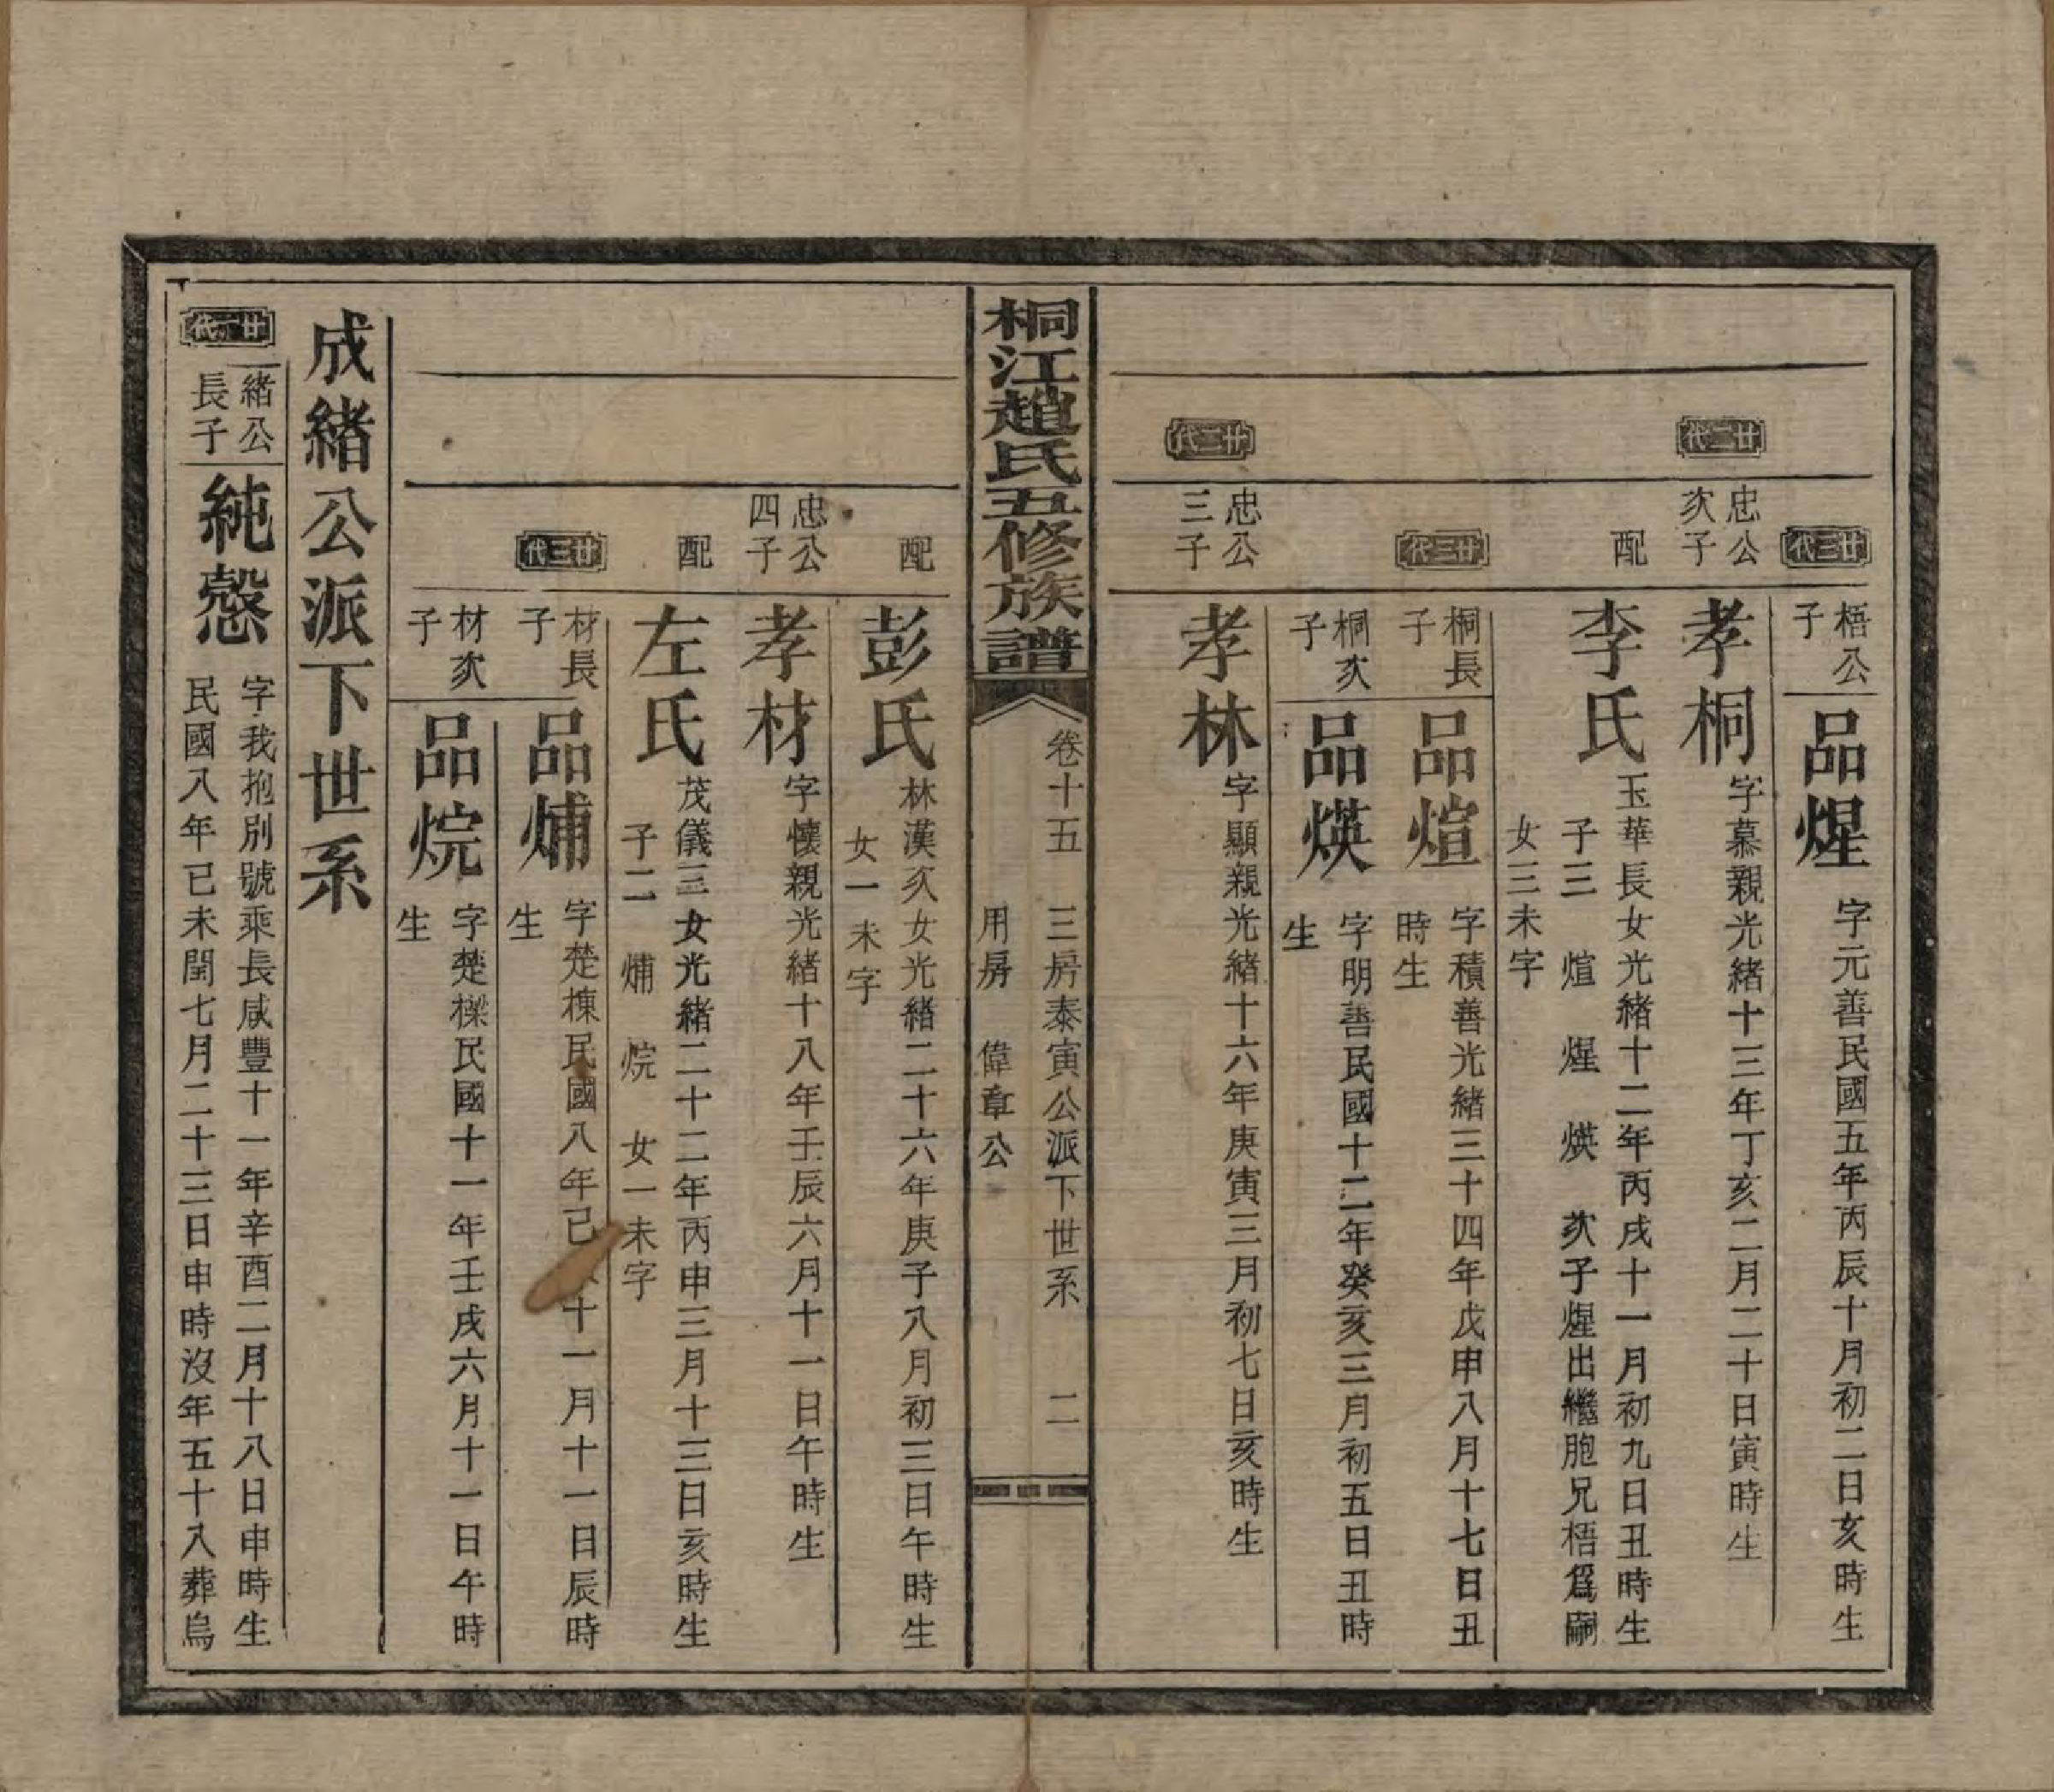 廿三代
梧公子
品煋
字元善民國五年丙辰十月初二日亥時生
廿二代
忠公次子
孝桐
字慕親光緒十三年丁亥二月二十日寅時生
配
李氏
玉華長女光緒十二年丙戌十一月初九日丑時生
子三 煊 煋 煐 次子煋出繼胞兄梧爲嗣
女三未字
廿三代
桐長子
品煊
字積善光緒三十四年戊申八月十七日丑時生
桐次子
品煐
字明善民國十二年癸亥三月初五日丑時生
廿二代
忠公三子
孝林
字顯親光緒十六年庚寅三月初七日亥時生
桐江趙氏五修族譜
卷十五 三房泰寅公派下世系 二
用房 偉章公
配
彭氏
林漢次女光緒二十六年庚子八月初三日午時生
女一未字
忠公四子
孝材
字懷親光緒十八年壬辰六月十一日午時生
配
左氏
茂儀三女光緒二十二年丙申三月十三日亥時生
子二 烳 烷 女一未字
廿三代
材長子
品烳
字楚棟民國八年己十一月十一日辰時生
材次子
品烷
字楚樑民國十一年壬戌六月十一日午時生
成緒公派下世系
廿一代
緒公長子
純慤
字我抱別號乘長咸豐十一年辛酉二月十八日申時生
民國八年己未閏七月二十三日申時沒年五十八葬烏